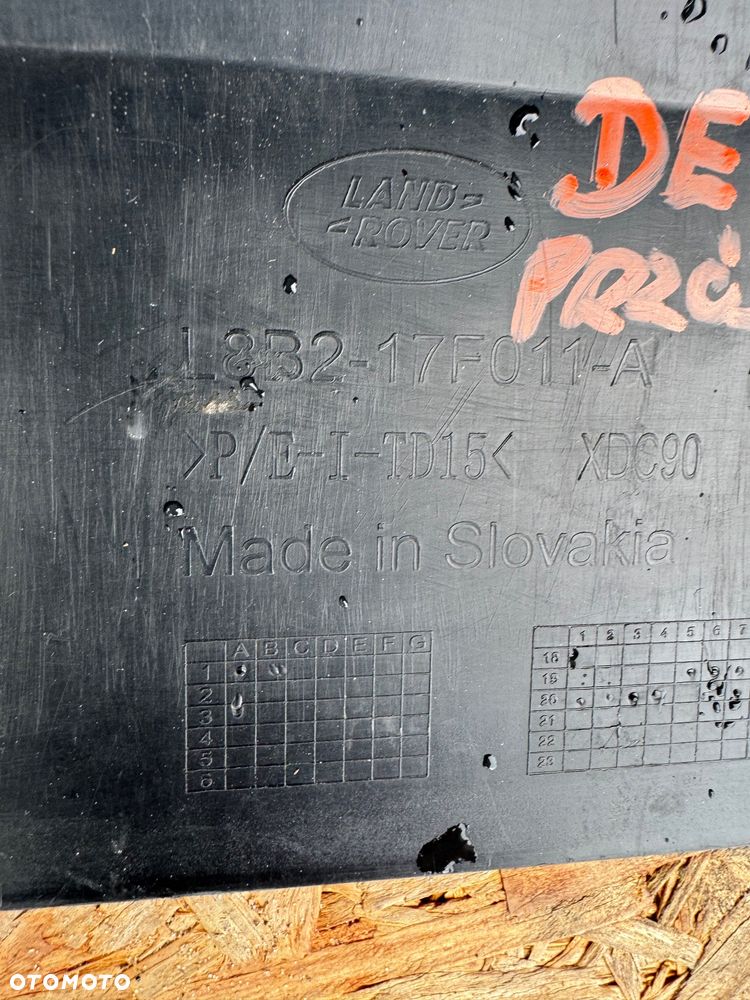 DE
LAND
ROVER
PRZÓ
L8B2-17F011-A
>P/E-I-TD15< XDC90
Made in Slovakia
A B C D E F G
1
2
3
4
5
6
1 2 3 4 5 6 7
18
19
20
21
22
23
OTOMOTO